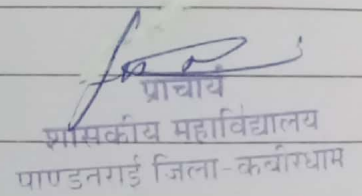 प्राचार्य
शासकीय महाविद्यालय
पाण्डातराई जिला-कबीरधाम